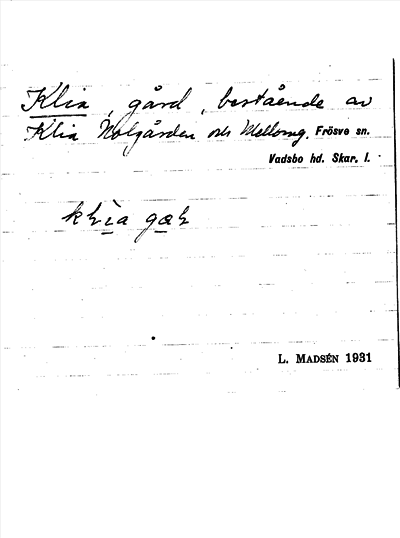 Klia, gård, bestående av
Klia Nolgården och Mellomg. Frösve sn.
Vadsbo hd. Skar. l.
L. MADSÉN 1931